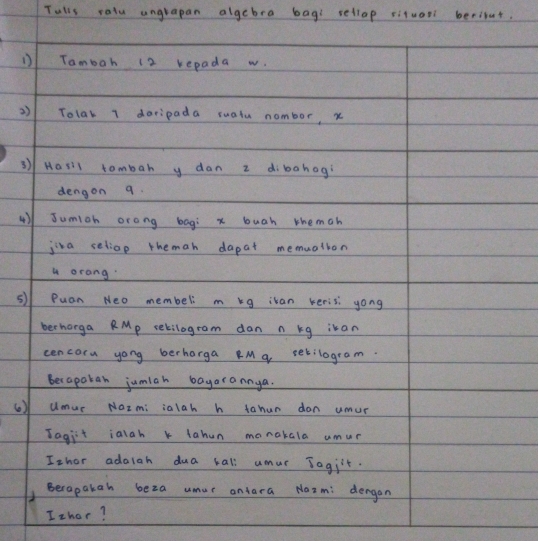 Tulis satu ungkapan algebra bagi setiap situasi berikut.
1) Tambah 12 kepada w.
2) Tolak 7 daripada suatu nombor, x
3) Hasil tambah y dan z dibahagi
dengan 9.
4) Jumlah orang bagi x buah khemah
jika setiap khemah dapat memuatkan
4 orang.
5) Puan Neo membeli m kg ikan kerisi yang
berharga RMp sekilogram dan n kg ikan
cencaru yang berharga RMq sekilogram.
Berapakah jumlah bayarannya.
6) Umur Nazmi ialah h tahun dan umur
Jagjit ialah k tahun manakala umur
Izhar adalah dua kali umur Jagjit.
Berapakah beza umur antara Nazmi dengan
Izhar?